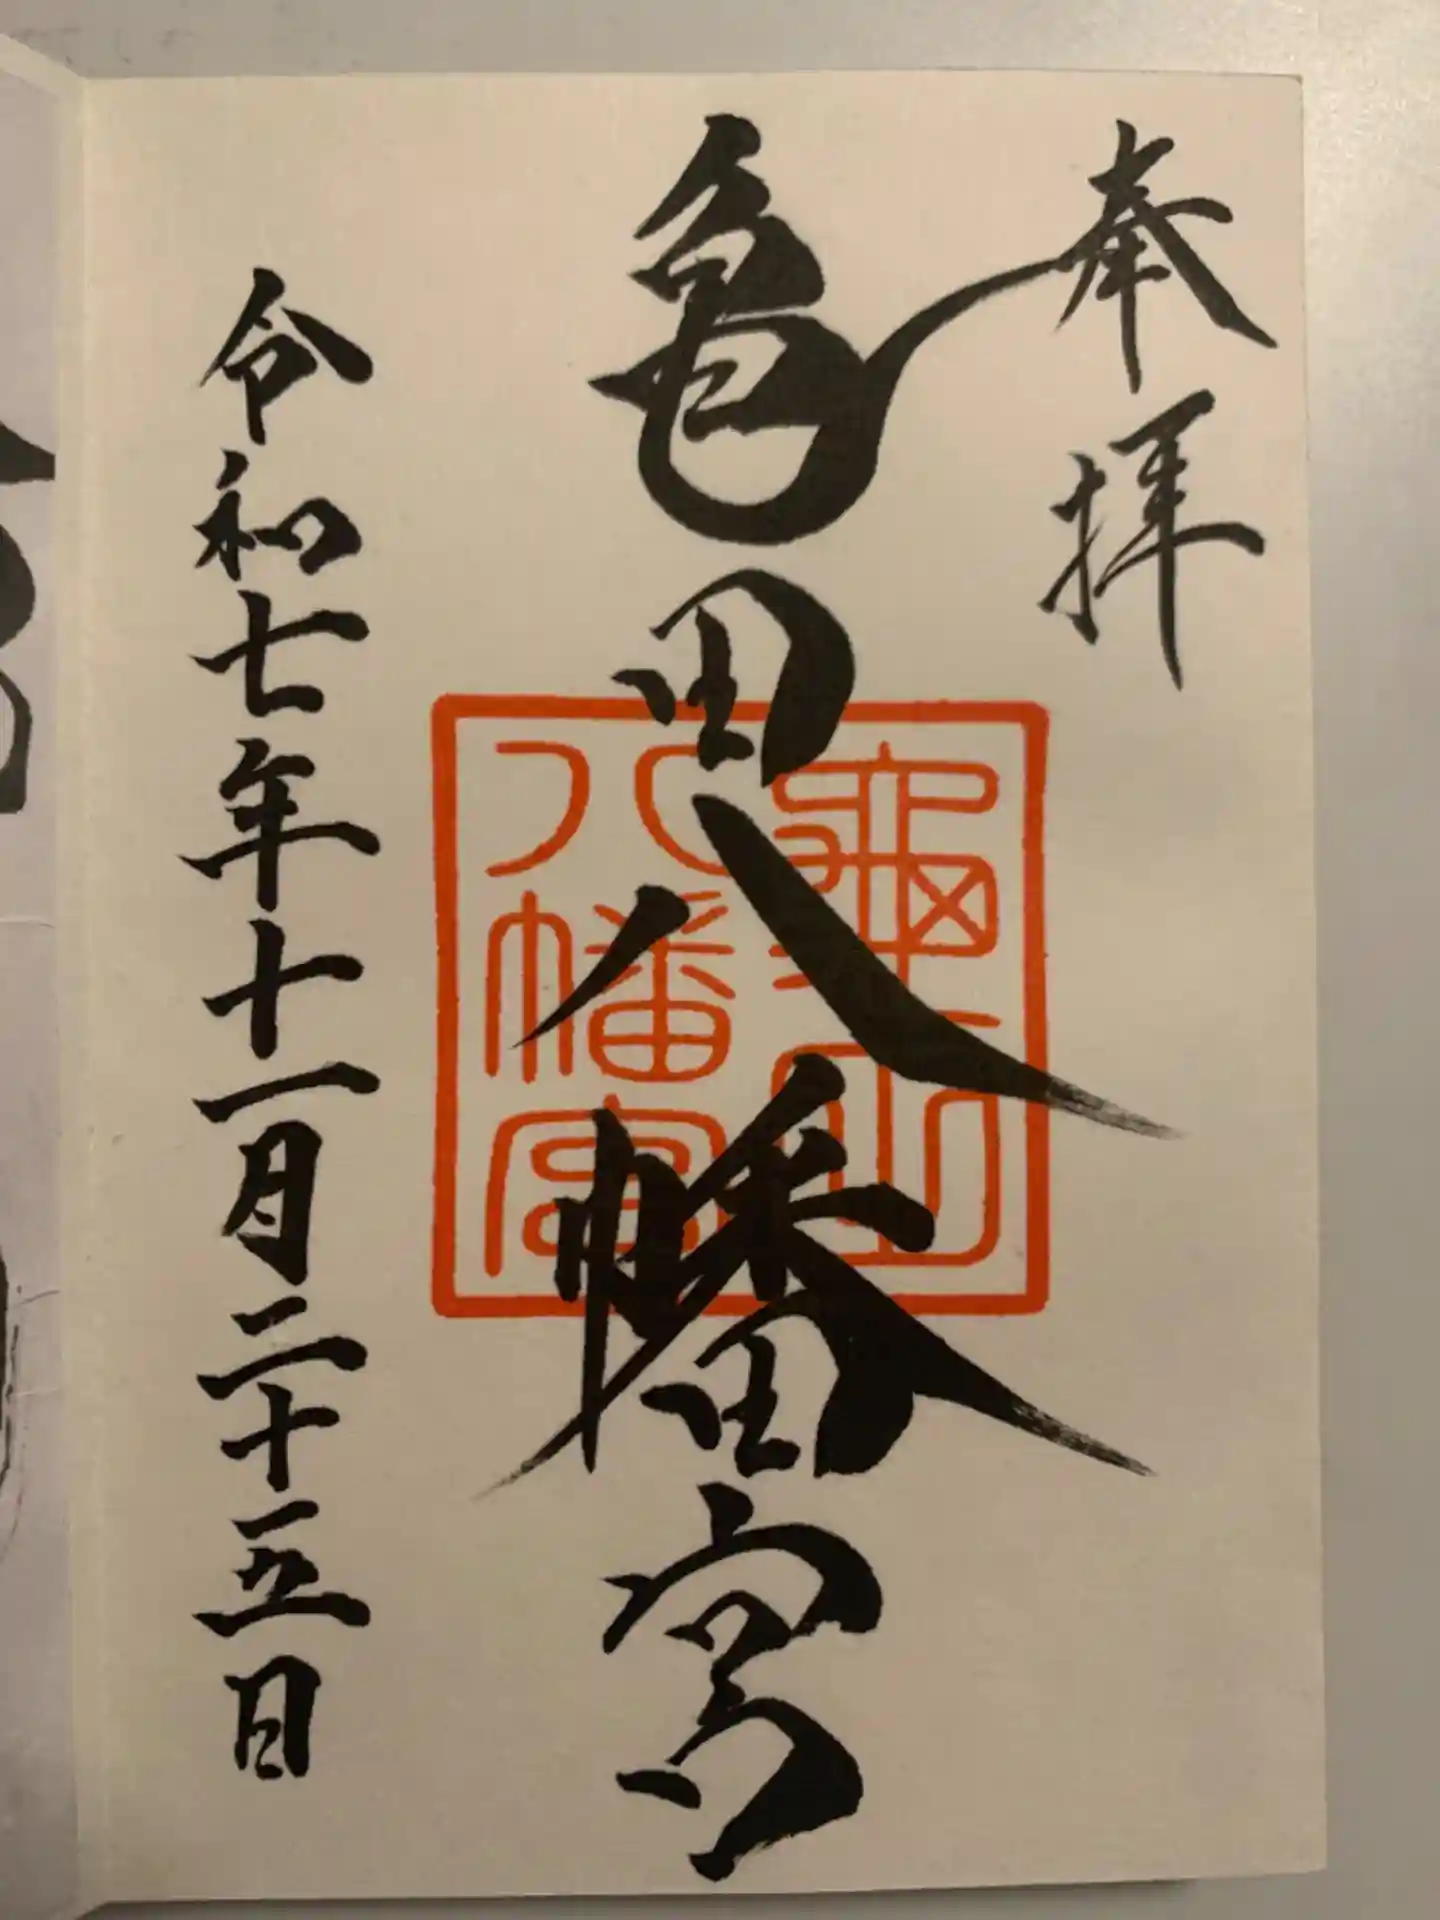 奉拝
亀田八幡宮
八幡宮
令和七年十一月二十五日